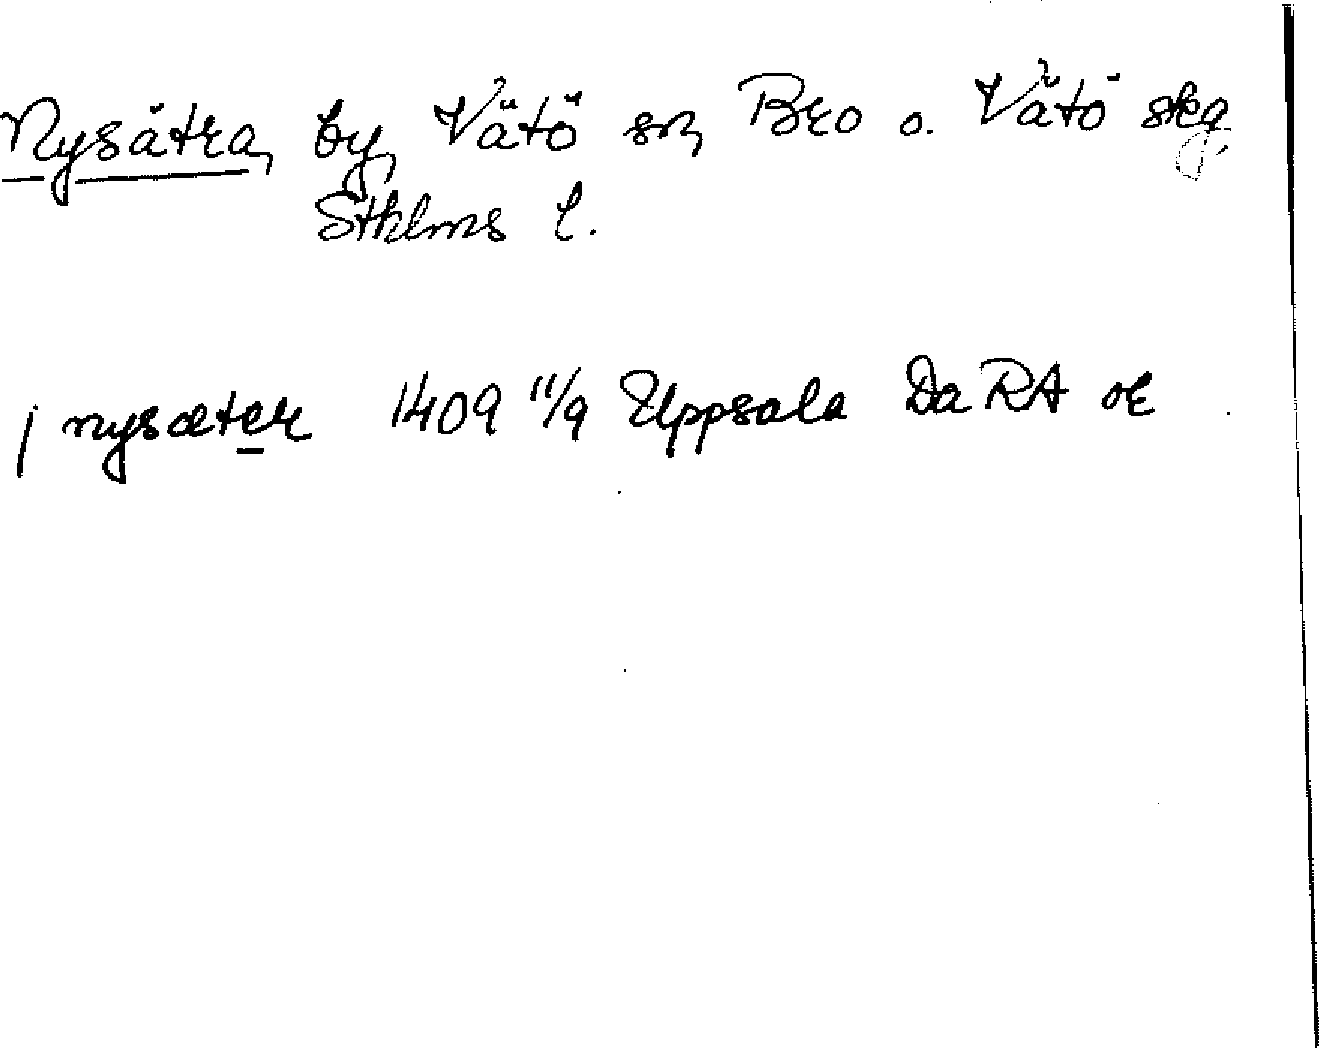 Nysätra, by, Vätö sn, Bro o. Vätö skg,
Sthlms l.
j nysæter 1409 11/9 Uppsala Da RA or